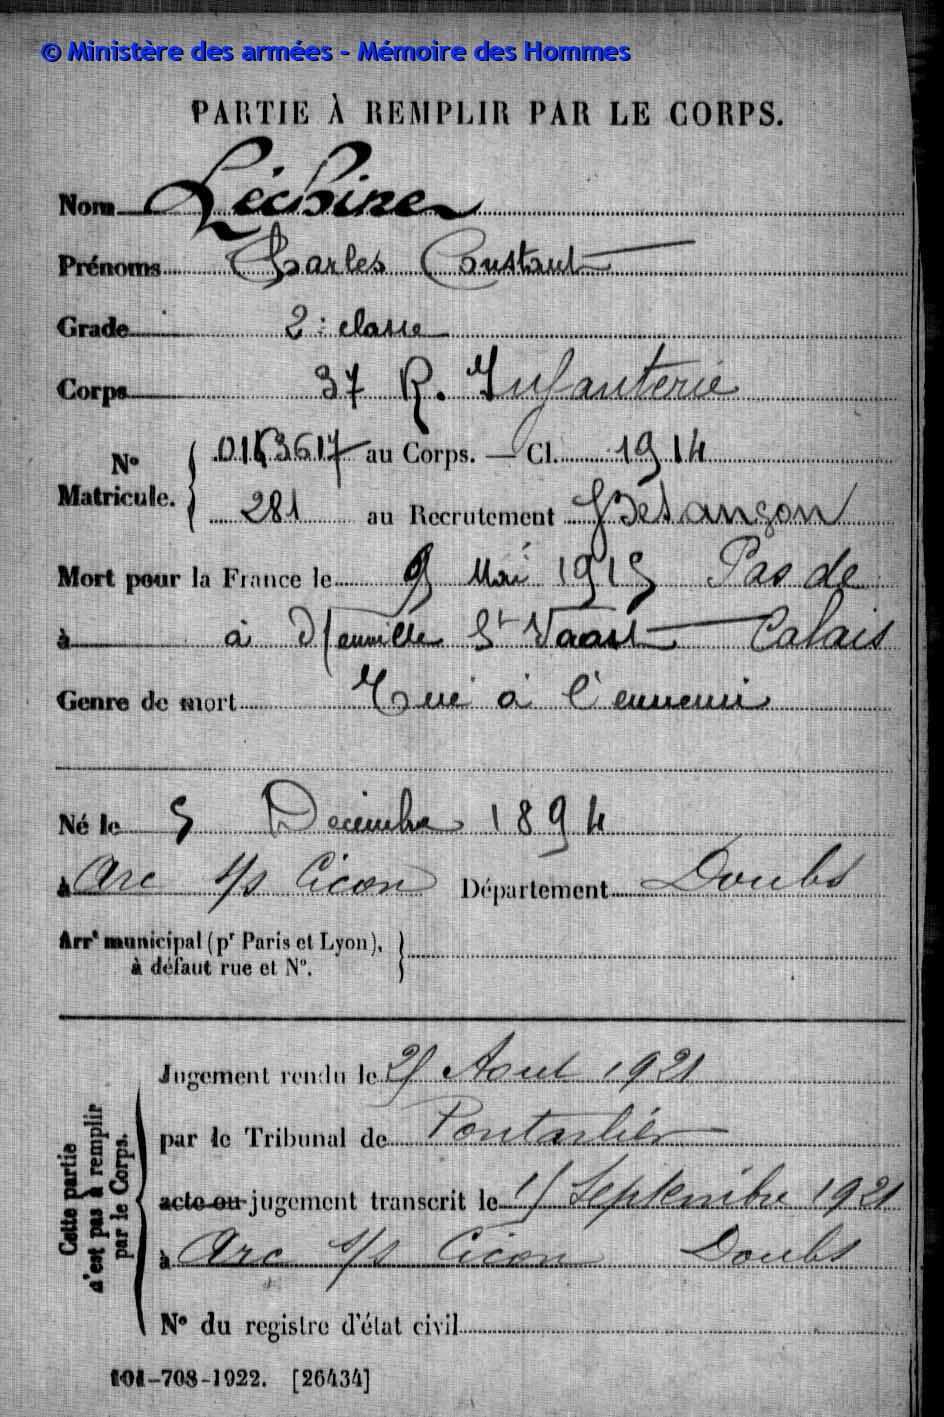 © Ministère des armées - Mémoire des Hommes
PARTIE À REMPLIR PAR LE CORPS.
Nom Léchine
Prénoms Charles Constant
Grade 2e classe
Corps 37 R. Infanterie
No Matricule. { 0153617 au Corps. — Cl. 1914
281 au Recrutement Besançon
Mort pour la France le 9 Mai 1915 Pas de
à à Neuville St Vaast Calais
Genre de mort Tué à l'ennemi
Né le 5 Décembre 1894
à Arc s/s Cicon Département Doubs
Arrt municipal (pr Paris et Lyon),
à défaut rue et No.
Cette partie n'est pas à remplir par le Corps.
Jugement rendu le 25 Aout 1921
par le Tribunal de Pontarlier
acte ou jugement transcrit le 15 Septembre 1921
à Arc s/s Cicon Doubs
No du registre d'état civil
101-708-1922. [26434]